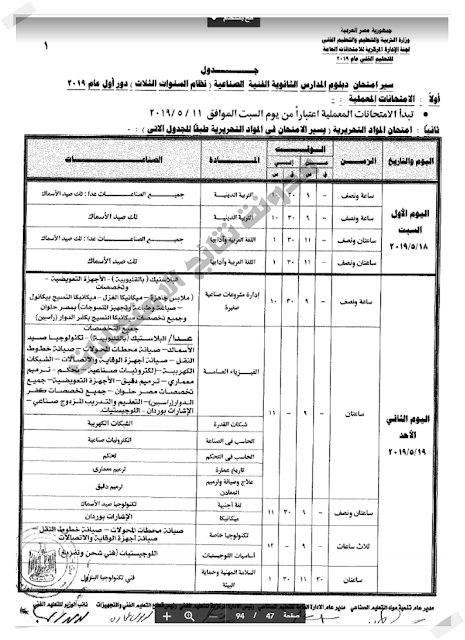 جمهورية مصر العربية
وزارة التربية والتعليم والتعليم الفنى
لجنة الإدارة المركزية للامتحانات العامة
للتعليم الفني عام ٢٠١٩
١
جدول
سير امتحان دبلوم المدارس الثانوية الفنية الصناعية ( نظام السنوات الثلاث ) دور أول عام ٢٠١٩
أولاً : الامتحانات العملية :
تبدأ الامتحانات العملية اعتباراً من يوم السبت الموافق ١١ / ٥ / ٢٠١٩
ثانياً : امتحان المواد التحريرية : يسير الامتحان فى المواد التحريرية طبقاً للجدول الآتى :
اليوم والتاريخ الزمن الوقت المادة الصناعات
من إلى
ق س ق س
اليوم الأول السبت ٢٠١٩/٥/١٨
ساعة ونصف - ٩ ٣٠ ١٠ التربية الدينية جميع الصناعات عدا : تلك صيد الأسماك
ساعة ونصف - ٩ ٣٠ ١٠ التربية الدينية تلك صيد الأسماك
ساعتان ونصف - ١١ ٣٠ ١ اللغة العربية وآدابها جميع الصناعات عدا : تلك صيد الأسماك
ساعتان ونصف - ١١ ٣٠ ١ اللغة العربية وآدابها تلك صيد الأسماك
اليوم الثاني الأحد ٢٠١٩/٥/١٩
ساعة ونصف - ٩ ٣٠ ١٠ إدارة مشروعات صناعية صغيرة
البلاستيك ( بالقليوبية ) - الأجهزة التعويضية -
وتخصصات
( ملابس جاهزة - ميكانيكا الغزل - ميكانيكا النسيج بيكانول
- صباغة وطباعة وتجهيز المنسوجات) بمصر حلوان
وجميع تخصصات ميكانيكا النسيج بكفر الدوار (راسين)
ساعتان - ٩ - ١١ الفيزياء العامة
جميع التخصصات
عدا / البلاستيك (بالقليوبية) - تكنولوجيا صيد
الأسماك - صيانة محطات المحولات - صيانة خطوط
النقل - صيانة أجهزة الوقاية والاتصالات - الشبكات
الكهربية - إلكترونيات صناعية - تحكم - ترميم
معماري - ترميم دقيق - الأجهزة التعويضية - جميع
تخصصات مصر حلوان - جميع تخصصات كفر
الدوار (راسين) - التعليم والتدريب المزدوج صناعي -
الإشارات بوردان - اللوجيستيات.
شبكات القدرة الشبكات الكهربية
الحاسب فى الصناعة إلكترونيات صناعية
الحاسب فى التحكم تحكم
تاريخ عمارة ترميم معمارى
علاج وصيانة وترميم المعادن ترميم دقيق
ساعتان ونصف - ٩ ٣٠ ١١ لغة أجنبية تكنولوجيا صيد الأسماك
ميكانيكا الإشارات بوردان
ثلاث ساعات - ٩ - ١٢ تكنولوجيا خاصة صيانة محطات المحولات - صيانة خطوط النقل -
صيانة أجهزة الوقاية والاتصالات
أساسيات اللوجستيات اللوجستيات (فني شحن وتفريغ)
ساعتان ٣٠ ١١ ٣٠ ١ السلامة المهنية وحماية البيئة فني تكنولوجيا البترول
مدير عام تنمية مواد التعليم الصناعي
نائب الوزير للتعليم الفني
صفحة 47 / 94